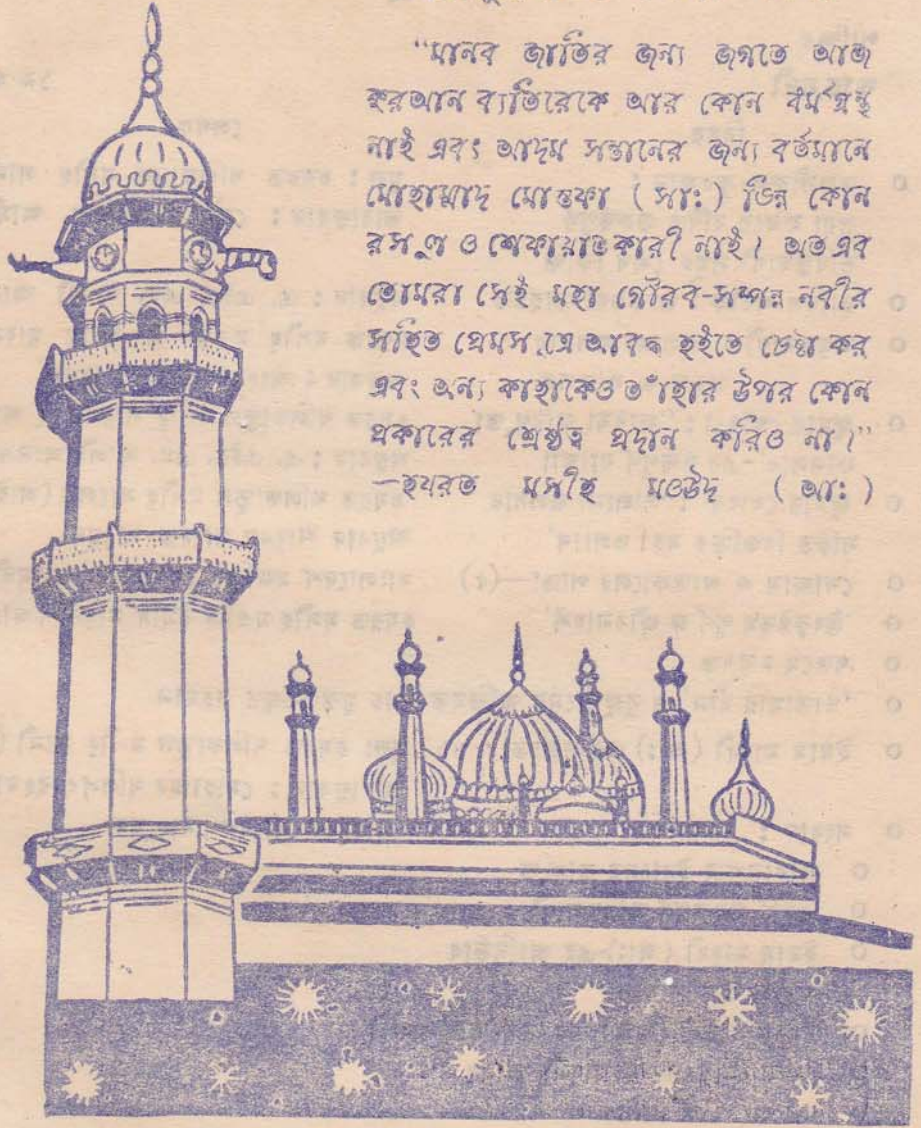 “মানব জাতির জন্য জগতে আজ
কুরআন ব্যতিরেকে আর কোন ধর্ম গ্রন্থ
নাই এবং আদম সন্তানের জন্য বর্তমানে
মোহাম্মাদ মোস্তফা ( সাঃ ) ভিন্ন কোন
রসূল ও শেফায়াতকারী নাই। অতএব
তোমরা সেই মহা গৌরব-সম্পন্ন নবীর
সহিত প্রেমসূত্রে আবদ্ধ হইতে চেষ্টা কর
এবং অন্য কাহাকেও তাঁহার উপর কোন
প্রকারের শ্রেষ্ঠত্ব প্রদান করিও না।”
—হযরত মসীহ মওউদ ( আঃ )